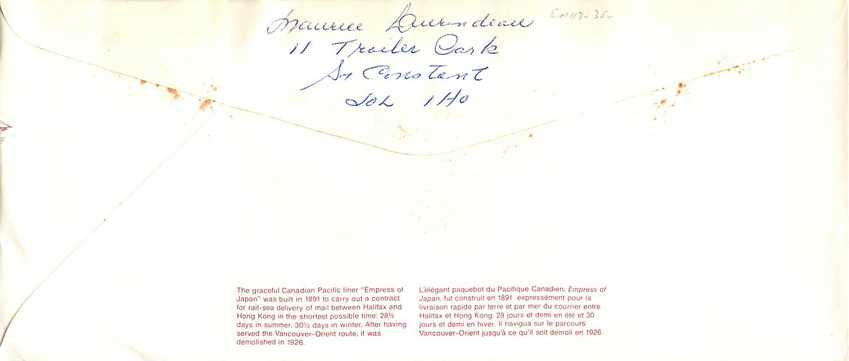 Maurice Laurendeau
11 Trailer Park
St Constant
J0L 1H0
The graceful Canadian Pacific liner "Empress of
Japan" was built in 1891 to carry out a contract
for rail-sea delivery of mail between Halifax and
Hong Kong in the shortest possible time: 28½
days in summer, 30½ days in winter. After having
served the Vancouver–Orient route, it was
demolished in 1926.
L'élégant paquebot du Pacifique Canadien, Empress of
Japan, fut construit en 1891 expressément pour la
livraison rapide par terre et par mer du courrier entre
Halifax et Hong Kong: 28 jours et demi en été et 30
jours et demi en hiver. Il navigua sur le parcours
Vancouver–Orient jusqu'à ce qu'il soit démoli en 1926.